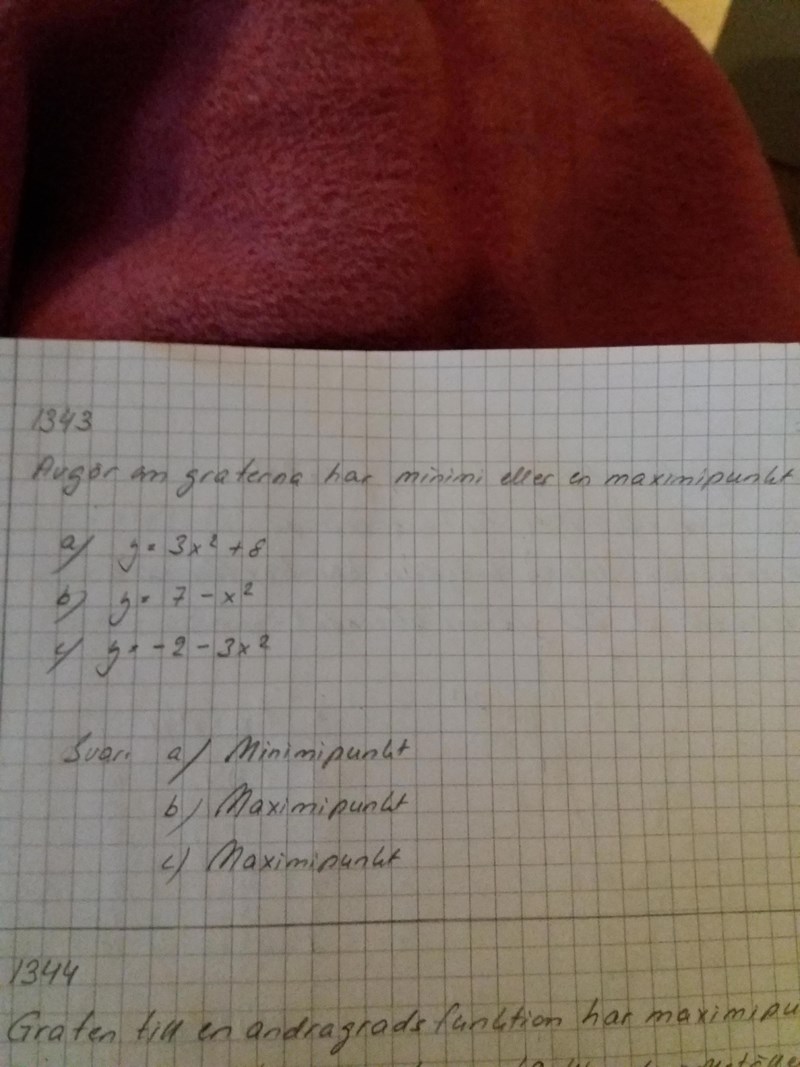 1343
Avgör om graferna har minimi eller en maximipunkt
a) y = 3x² + 8
b) y = 7 - x²
c) y = -2 - 3x²
Svar: a) Minimipunkt
b) Maximipunkt
c) Maximipunkt
1344
Grafen till en andragradsfunktion har maximipu